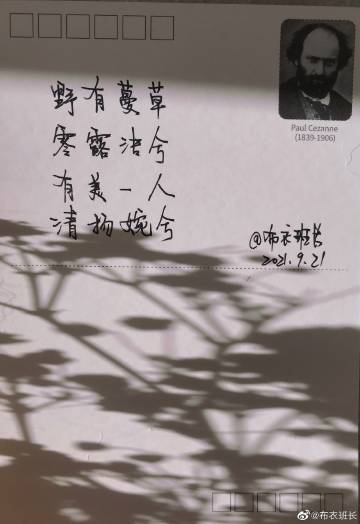 Paul Cezanne
(1839-1906)
野有蔓草
零露兮
有美一人
清扬婉兮
@布衣班长
2021.9.21
@布衣班长